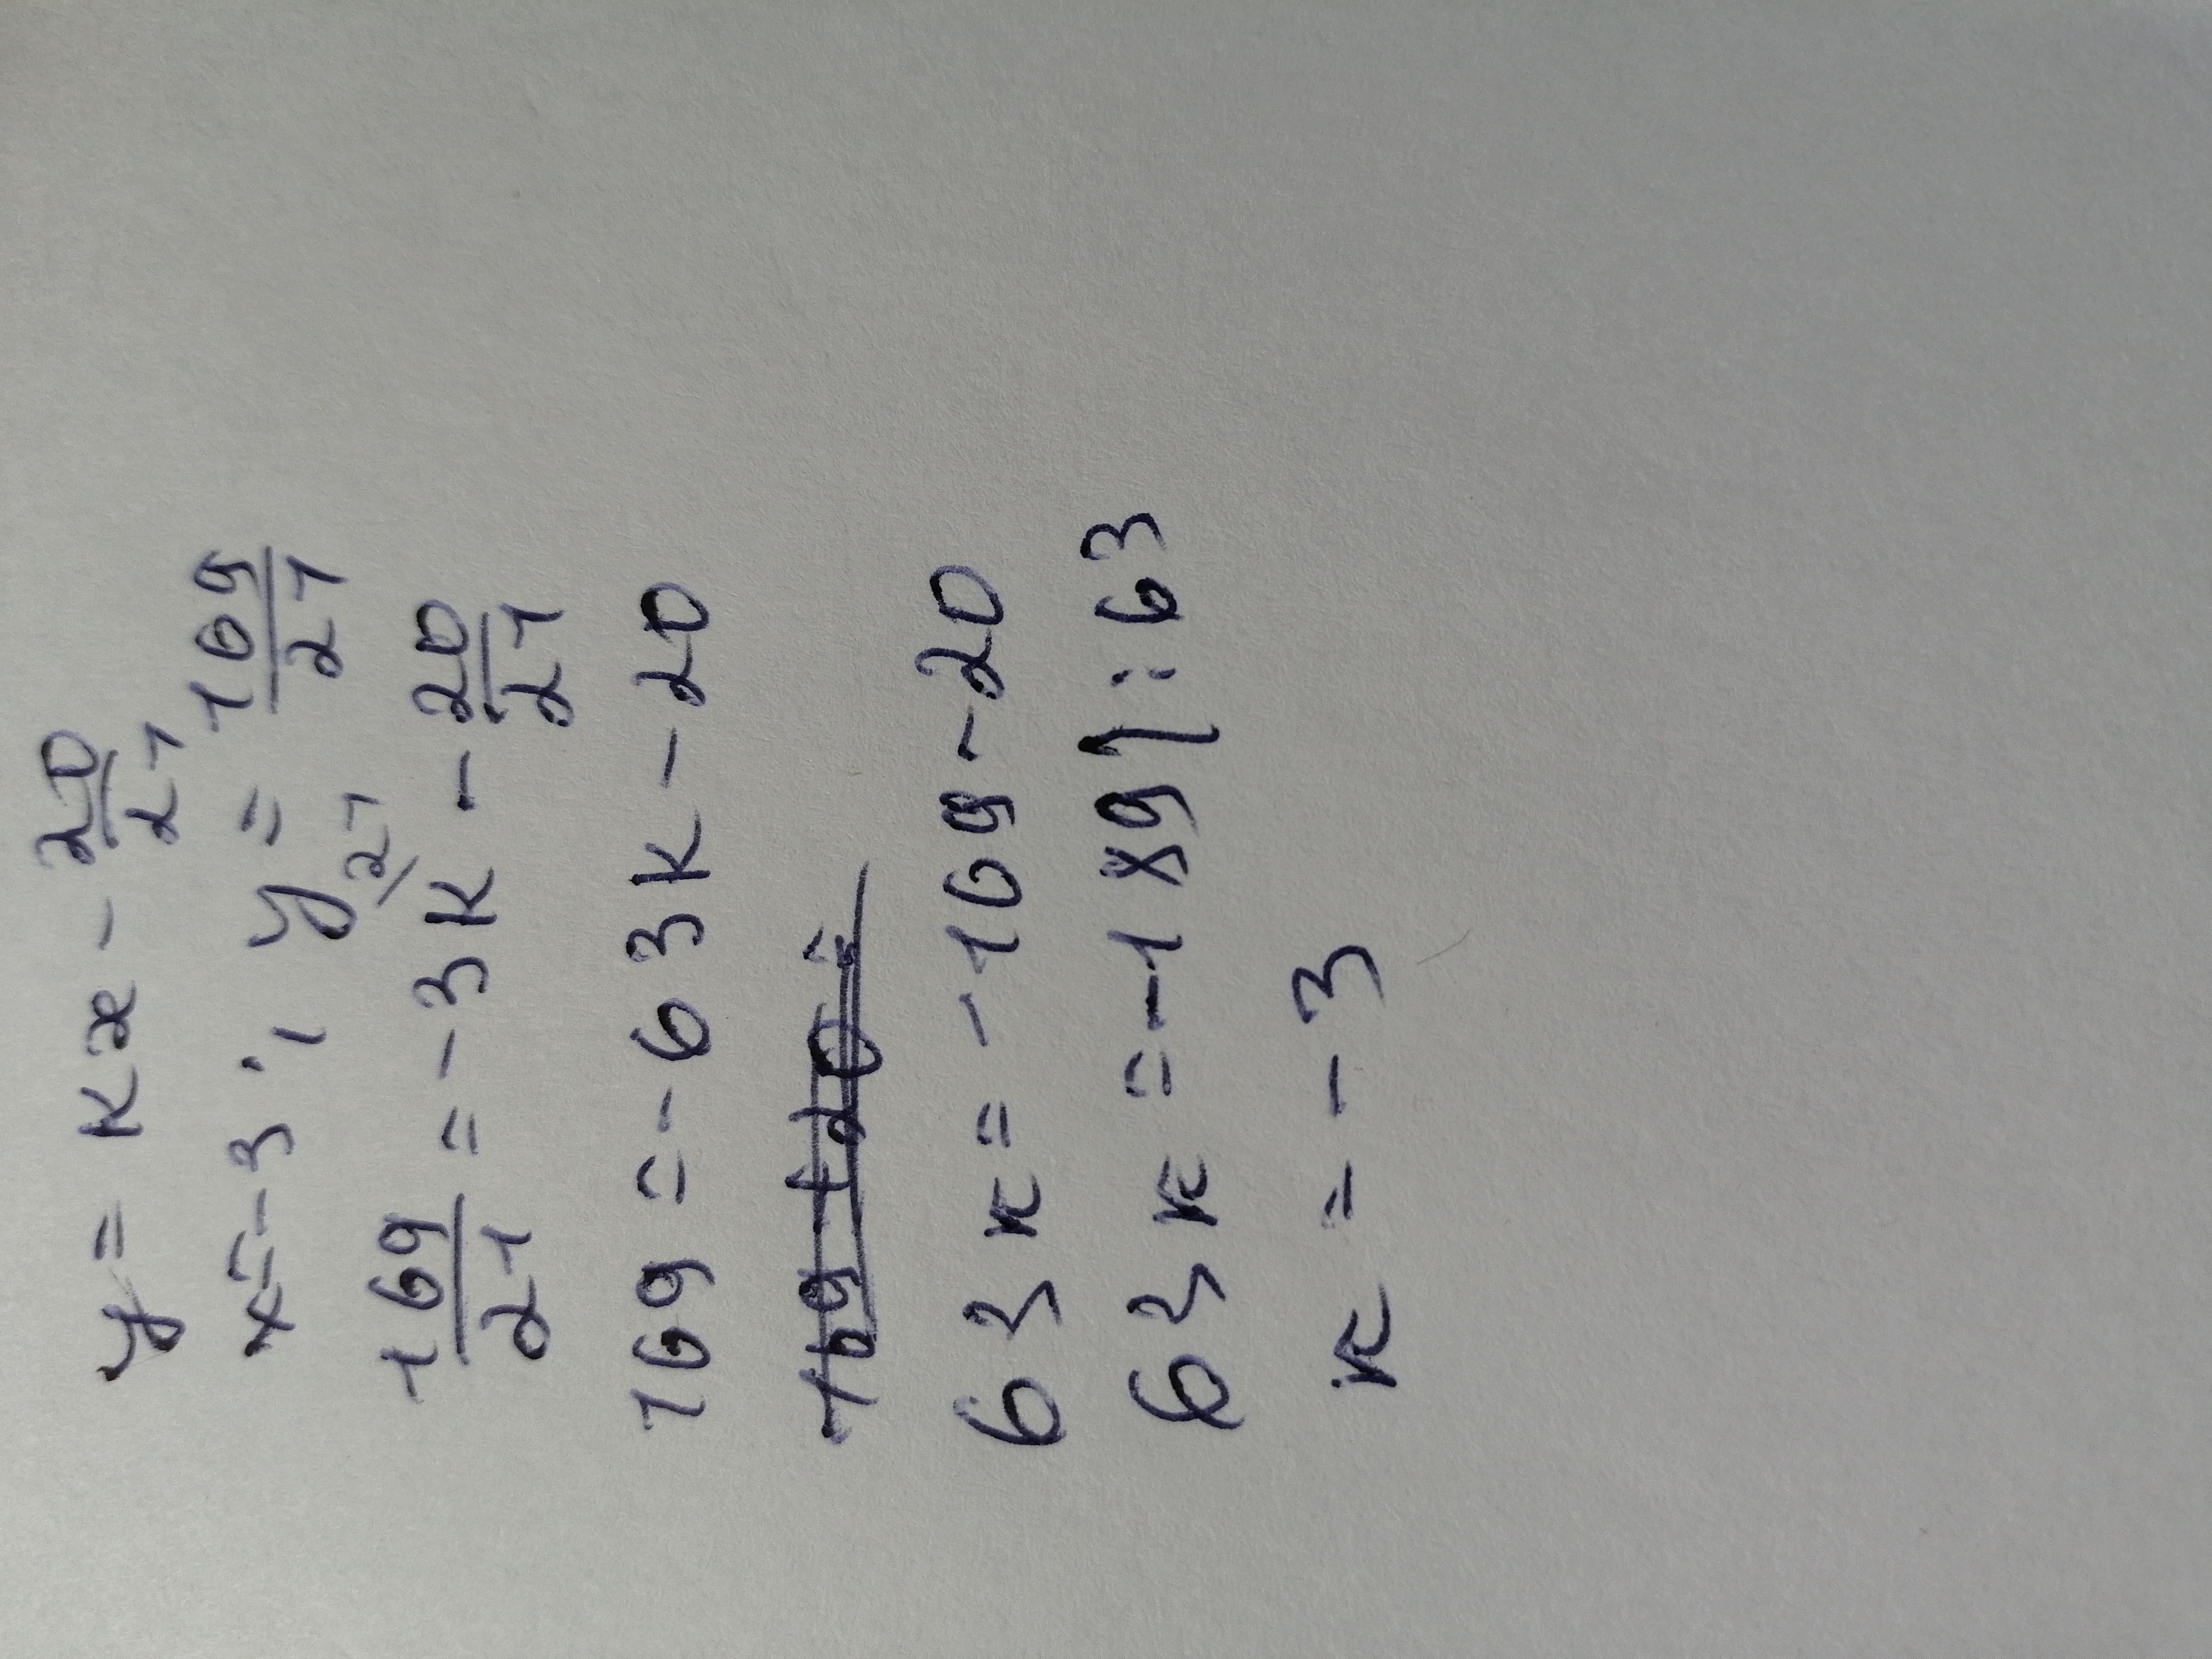 y = kx - 20/21
x = -3; y = 169/21
169/21 = -3k - 20/21 /21
169 = -63k - 20
169 + 20 =
63k = -169 - 20
63k = -189 | : 63
k = -3